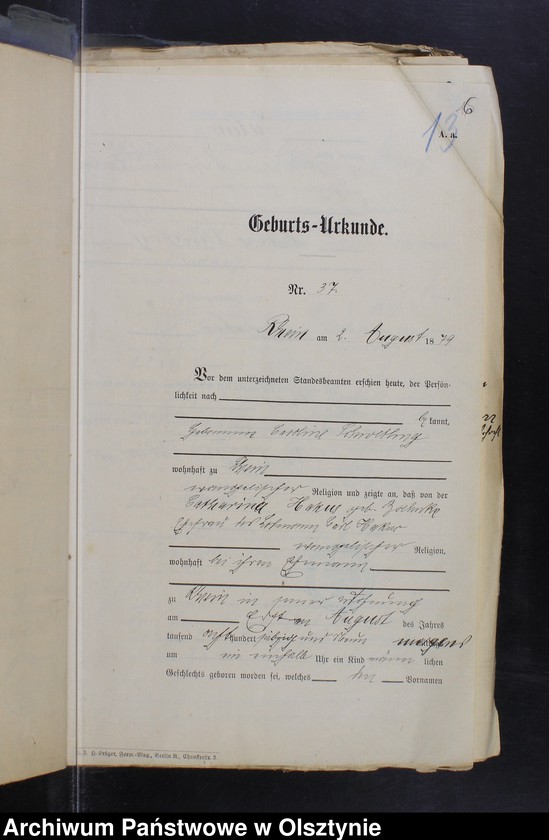 6
13
A. a.
Geburts-Urkunde.
Nr. 37
Rhein am 2. August 1879
Vor dem unterzeichneten Standesbeamten erschien heute, der Persön-
lichkeit nach
kannt,
Hebamme Caroline
wohnhaft zu Rhein
evangelischer Religion und zeigte an, daß von der
Catharina geb.
Ehefrau des Losmann Carl
evangelischer Religion,
wohnhaft bei ihrem Ehemann
zu Rhein in seiner Wohnung
am Ersten August des Jahres
tausend acht hundert siebzig und neun morgens
um ein einhalb Uhr ein Kind männ lichen
Geschlechts geboren worden sei, welches den Vornamen
H. Krüger, Form.-Mag., Berlin N., Chausseestr. 3
Archiwum Państwowe w Olsztynie